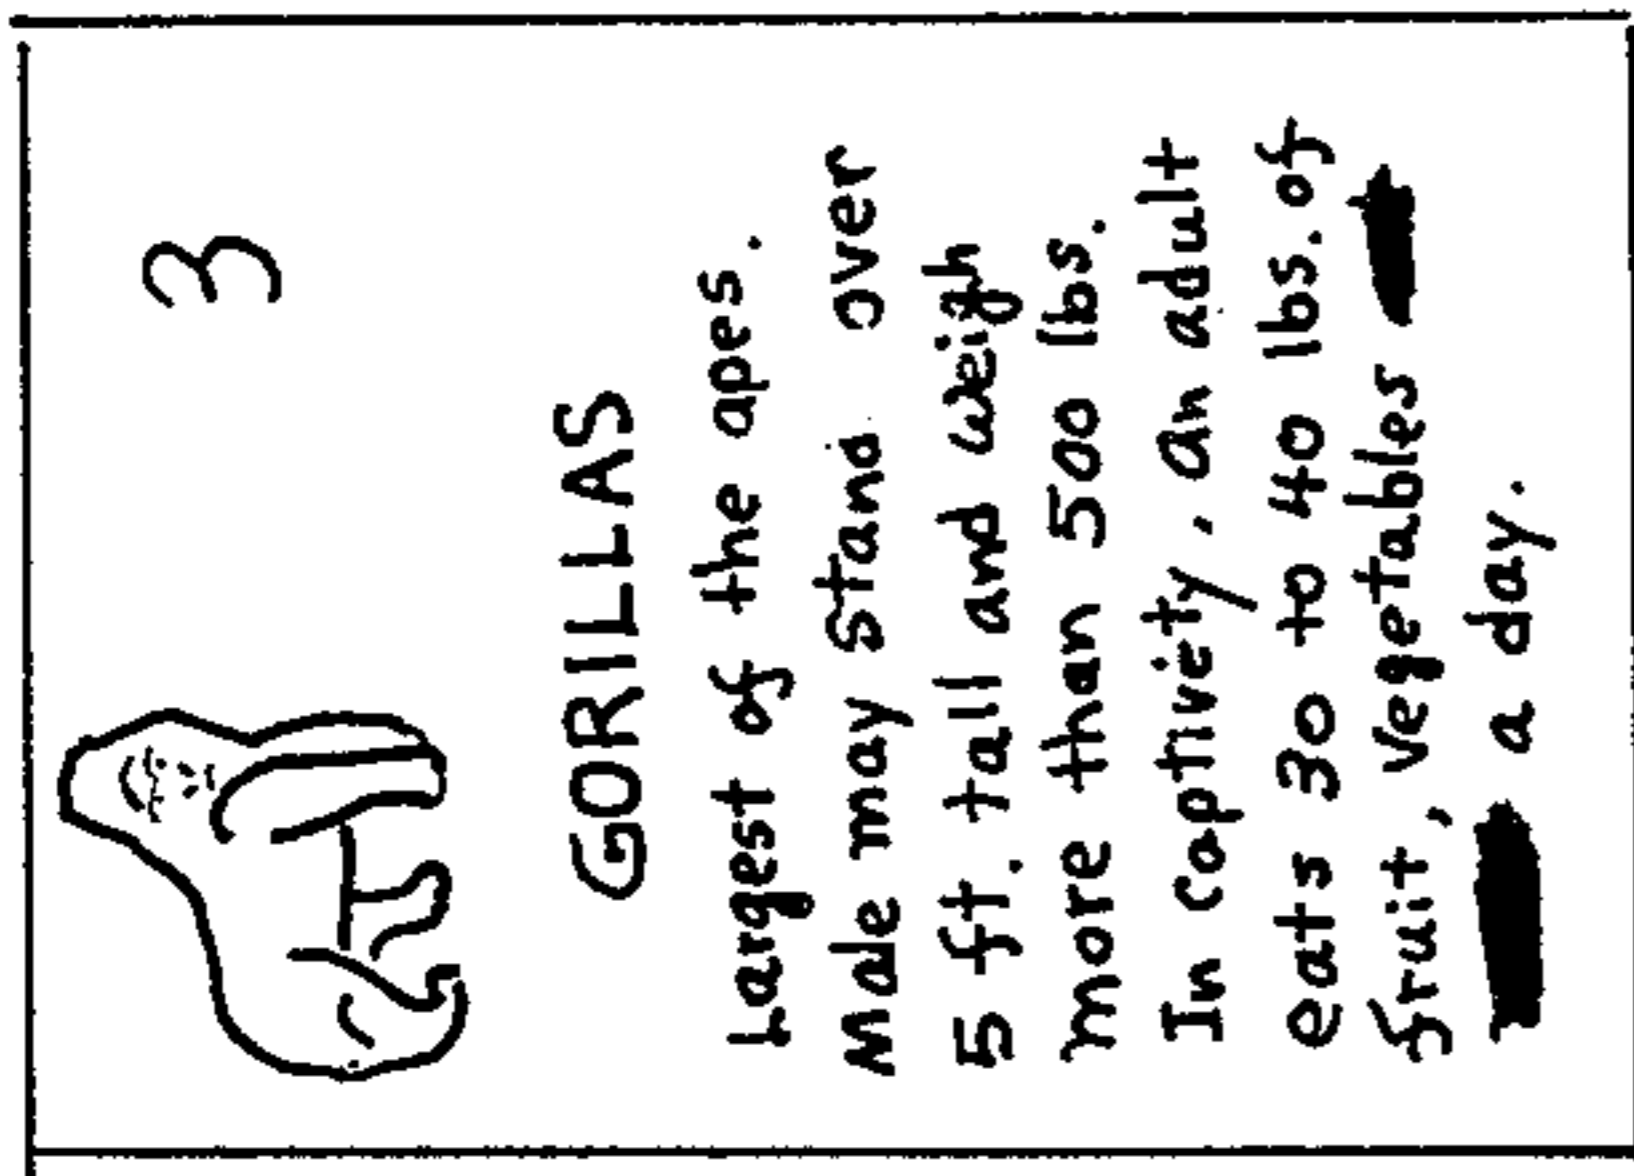 3
GORILLAS
Largest of the apes.
Male may stand over
5 ft. tall and weigh
more than 500 lbs.
In captiviety, an adult
eats 30 to 40 lbs. of
fruit, vegetables
a day.